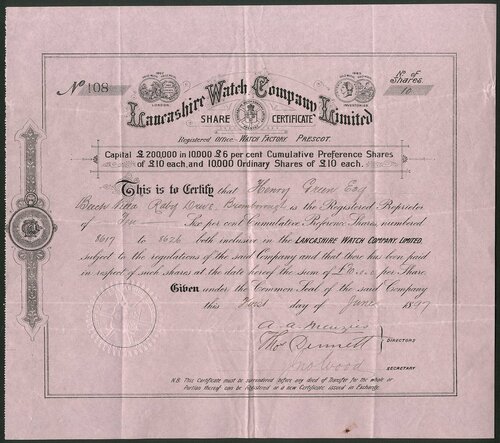 No 108
No of Shares.
10
Lancashire Watch Company Limited
SHARE CERTIFICATE
Registered Office WATCH FACTORY PRESCOT.
Capital £200,000 in 10000 £6 per cent Cumulative Preference Shares
of £10 each, and 10000 Ordinary Shares of £10 each.
This is to Certify that Henry Green Esq
Beech Villa Raby Drive, Bromborough is the Registered Proprietor
of Ten Six per cent Cumulative Prefrence Shares numbered
8617 to 8626 both inclusive in the LANCASHIRE WATCH COMPANY, LIMITED,
subject to the regulations of the said Company and that there has been paid
in respect of such shares at the date hereof the sum of £ per Share.
Given under the Common Seal of the said Company
this First day of June 1897
A. A. Menzies
Thos Dennett
DIRECTORS
Jno Wood
SECRETARY
N.B. This Certificate must be surrendered before any deed of Transfer for the whole or
Portion thereof can be Registered or a new Certificate issued in Exchange.